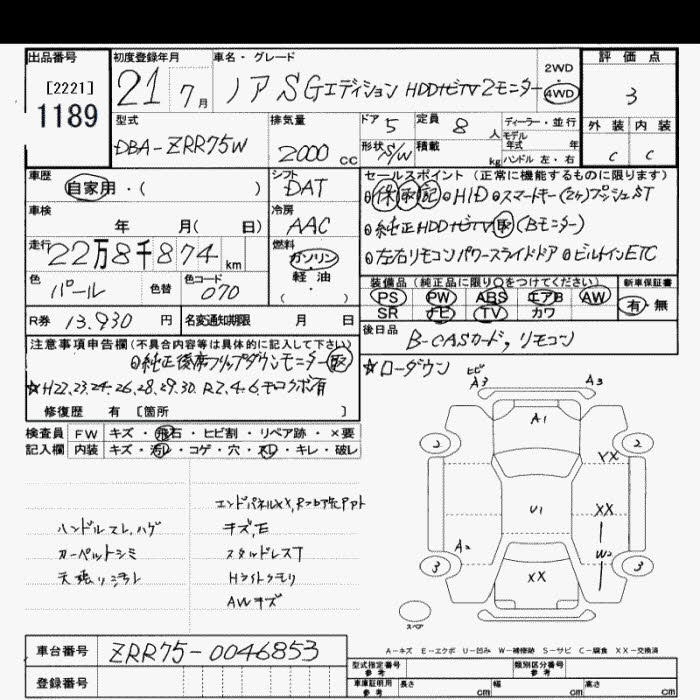 出品番号
[2221]
1189
初度登録年月
21 7月
車名・グレード
ノア SGエディション HDDナビTV 2モニター
2WD
4WD
評価点
3
外装 内装
C C
型式
DBA-ZRR75W
排気量
2000 cc
ドア 5
形状 S/W
定員 8 人
積載 kg
ディーラー・並行
モデル年式 年
ハンドル 左・右
車歴
自家用・( )
シフト
DAT
車検
年 月( 日)
冷房
AAC
走行
22万8千874 km
燃料
ガソリン
軽・油
( )
色
パール
色替
色コード
070
R券 13,930 円
名変通知期限 月 日
セールスポイント(正常に機能するものに限ります)
保 取 記 HID スマートキー(2ケ)プッシュST
純正HDDナビTV 取 (Bモニター)
左右リモコンパワースライドドア ビルトインETC
装備品(純正品に限り○をつけてください)
PS PW ABS エアB AW
SR ナビ TV カワ
新車保証書
有・無
後日品
B-CASカード, リモコン
注意事項申告欄(不具合内容等は具体的に記入して下さい)
純正後席フリップダウンモニター 取
☆H22.23.24.26.28.29.30. R2.4.6.キロクボ有
修復歴 有 [箇所 ]
☆ローダウン
検査員 FW キズ・飛石・ヒビ割・リペア跡・×要
記入欄 内装 キズ・汚レ・コゲ・穴・スレ・キレ・破レ
エンドパネルXX,
キズ, E
スタッドレスT
Hライトクモリ
AWキズ
ハンドルスレ, ハゲ
カーペットシミ
ヒビ
A3 A3
A1
2 2
XX
U1 XX
A2 W2
3 3
XX
スペア
A-キズ E-エクボ U-凹み W-補修跡 S-サビ C-腐食 XX-交換済
車台番号 ZRR75-0046853
登録番号
型式指定番号 参考
類別区分番号 参考
車庫証明用 参考 長さ cm 幅 cm 高さ cm